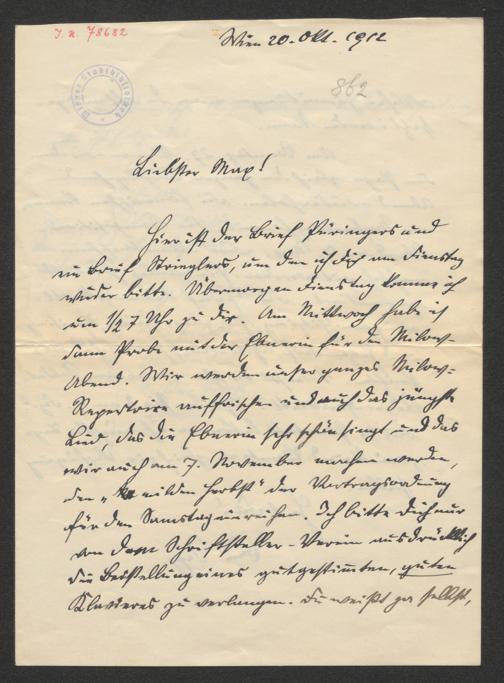 J. N. 78682
Wien 20. Okt. 1912
862
Wiener Stadtbibliothek
Liebster Max!
Hier ist der Brief Püringers und
ein Brief Strieglers, um den ich Dich am Dienstag
wieder bitte. Übermorgen Dienstag komme ich
um 1/2 7 Uhr zu Dir. Am Mittwoch habe ich
dann Probe mit der Ebnerin für den Milow-
Abend. Wir werden unser ganzes Milow-
Repertoire auffrischen und auch das jüngste
Lied, das die Ebnerin sehr schön singt und das
wir auch am 7. November machen werden,
den „milden Herbst“ der Vortragsordnung
für den Samstag einreihen. Ich bitte Dich nur
von dem Schriftsteller-Verein ausdrücklich
die Beistellung eines gutgestimmten, guten
Klavieres zu verlangen. Du weißt ja selbst,